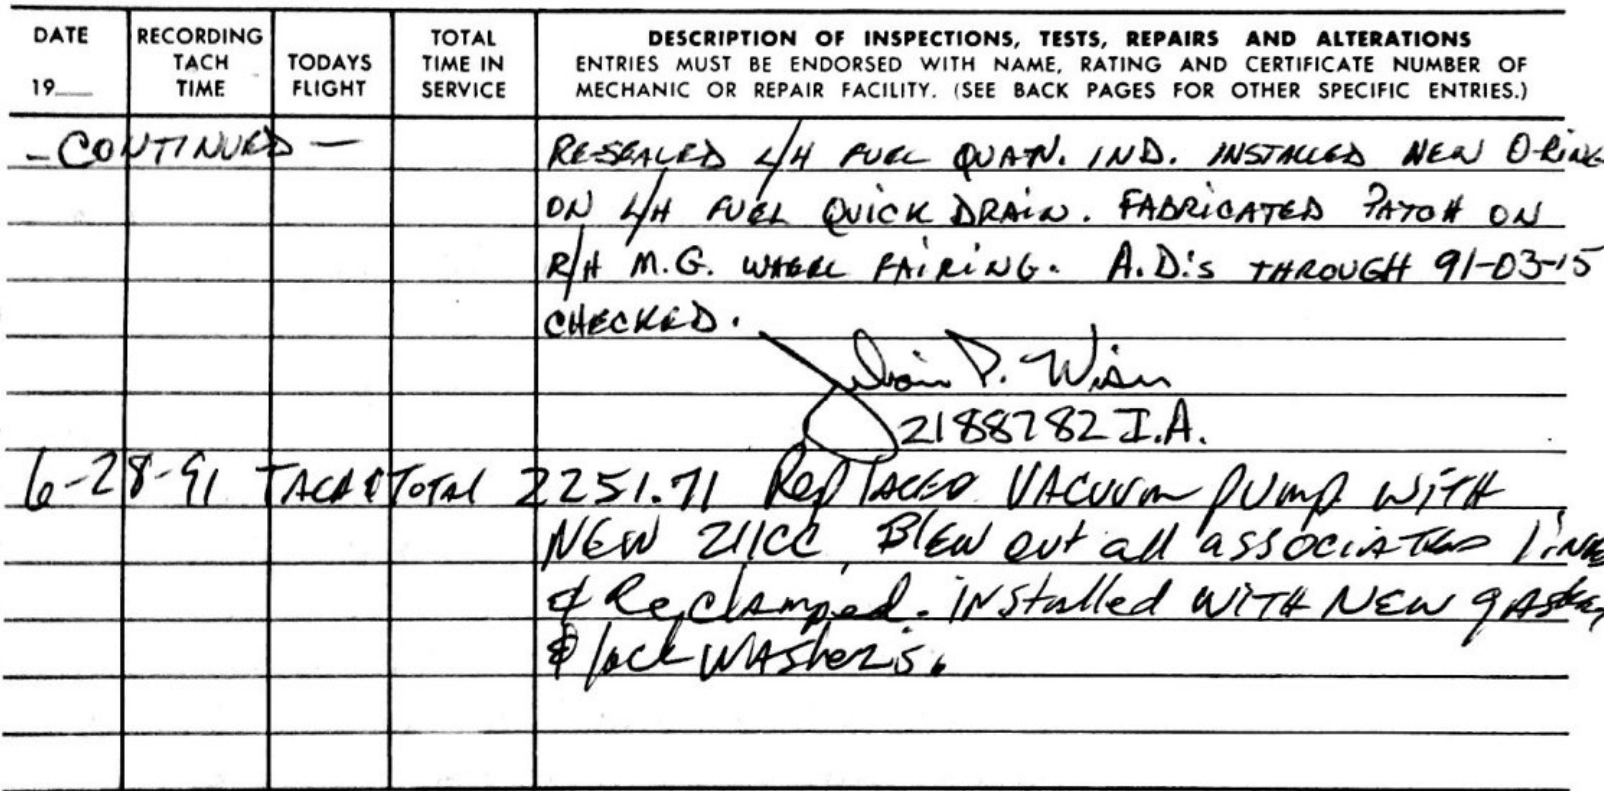 DATE
19__
RECORDING
TACH
TIME
TODAYS
FLIGHT
TOTAL
TIME IN
SERVICE
DESCRIPTION OF INSPECTIONS, TESTS, REPAIRS AND ALTERATIONS
ENTRIES MUST BE ENDORSED WITH NAME, RATING AND CERTIFICATE NUMBER OF
MECHANIC OR REPAIR FACILITY. (SEE BACK PAGES FOR OTHER SPECIFIC ENTRIES.)
- CONTINUED - RESEALED L/H FUEL QUAN. IND. INSTALLED NEW O-RING
ON L/H FUEL QUICK DRAIN. FABRICATED PATCH ON
R/H M.G. WHEEL FAIRING. A.D.'s THROUGH 91-03-15
CHECKED.
P.
2188782 I.A.
6-28-91 TACH & TOTAL 2251.71 Replaced VACUUM pump WITH
NEW 211CC Blew out all associated lines
& Reclamped. Installed WITH NEW gasket
& lock washers.